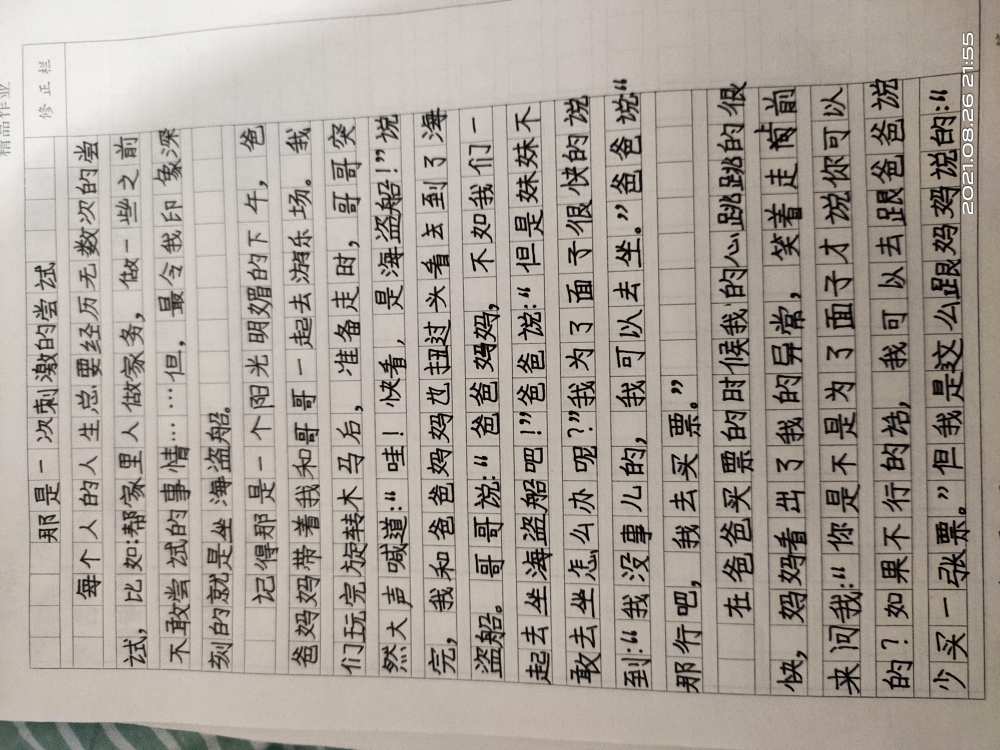 精品作业
修正栏
那是一次刺激的尝试
每个人的人生总要经历无数次的尝
试，比如：帮家里人做家务，做一些之前
不敢尝试的事情……但，最令我印象深
刻的就是坐海盗船。
记得那是一个阳光明媚的下午，爸
爸妈妈带着我和哥哥一起去游乐场。我
们玩完旋转木马后，准备走时，哥哥突
然大声喊道：“哇！快看，是海盗船！”说
完，我和爸爸妈妈也扭过头看去到了海
盗船。哥哥说：“爸爸妈妈，不如我们一
起去坐海盗船吧！”爸爸说：“但是妹妹不
敢去坐怎么办呢？”我为了面子很快的说
到：“我没事儿的，我可以去坐。”爸爸说“
那行吧，我去买票。”
在爸爸买票的时候我的心跳跳的很
快，妈妈看出了我的异常，笑着走前
来问我：“你是不是为了面子才说你可以
的？如果不行的话，我可以去跟爸爸说
少买一张票。”但我是这么跟妈妈说的：“
2021.08.26 21:55